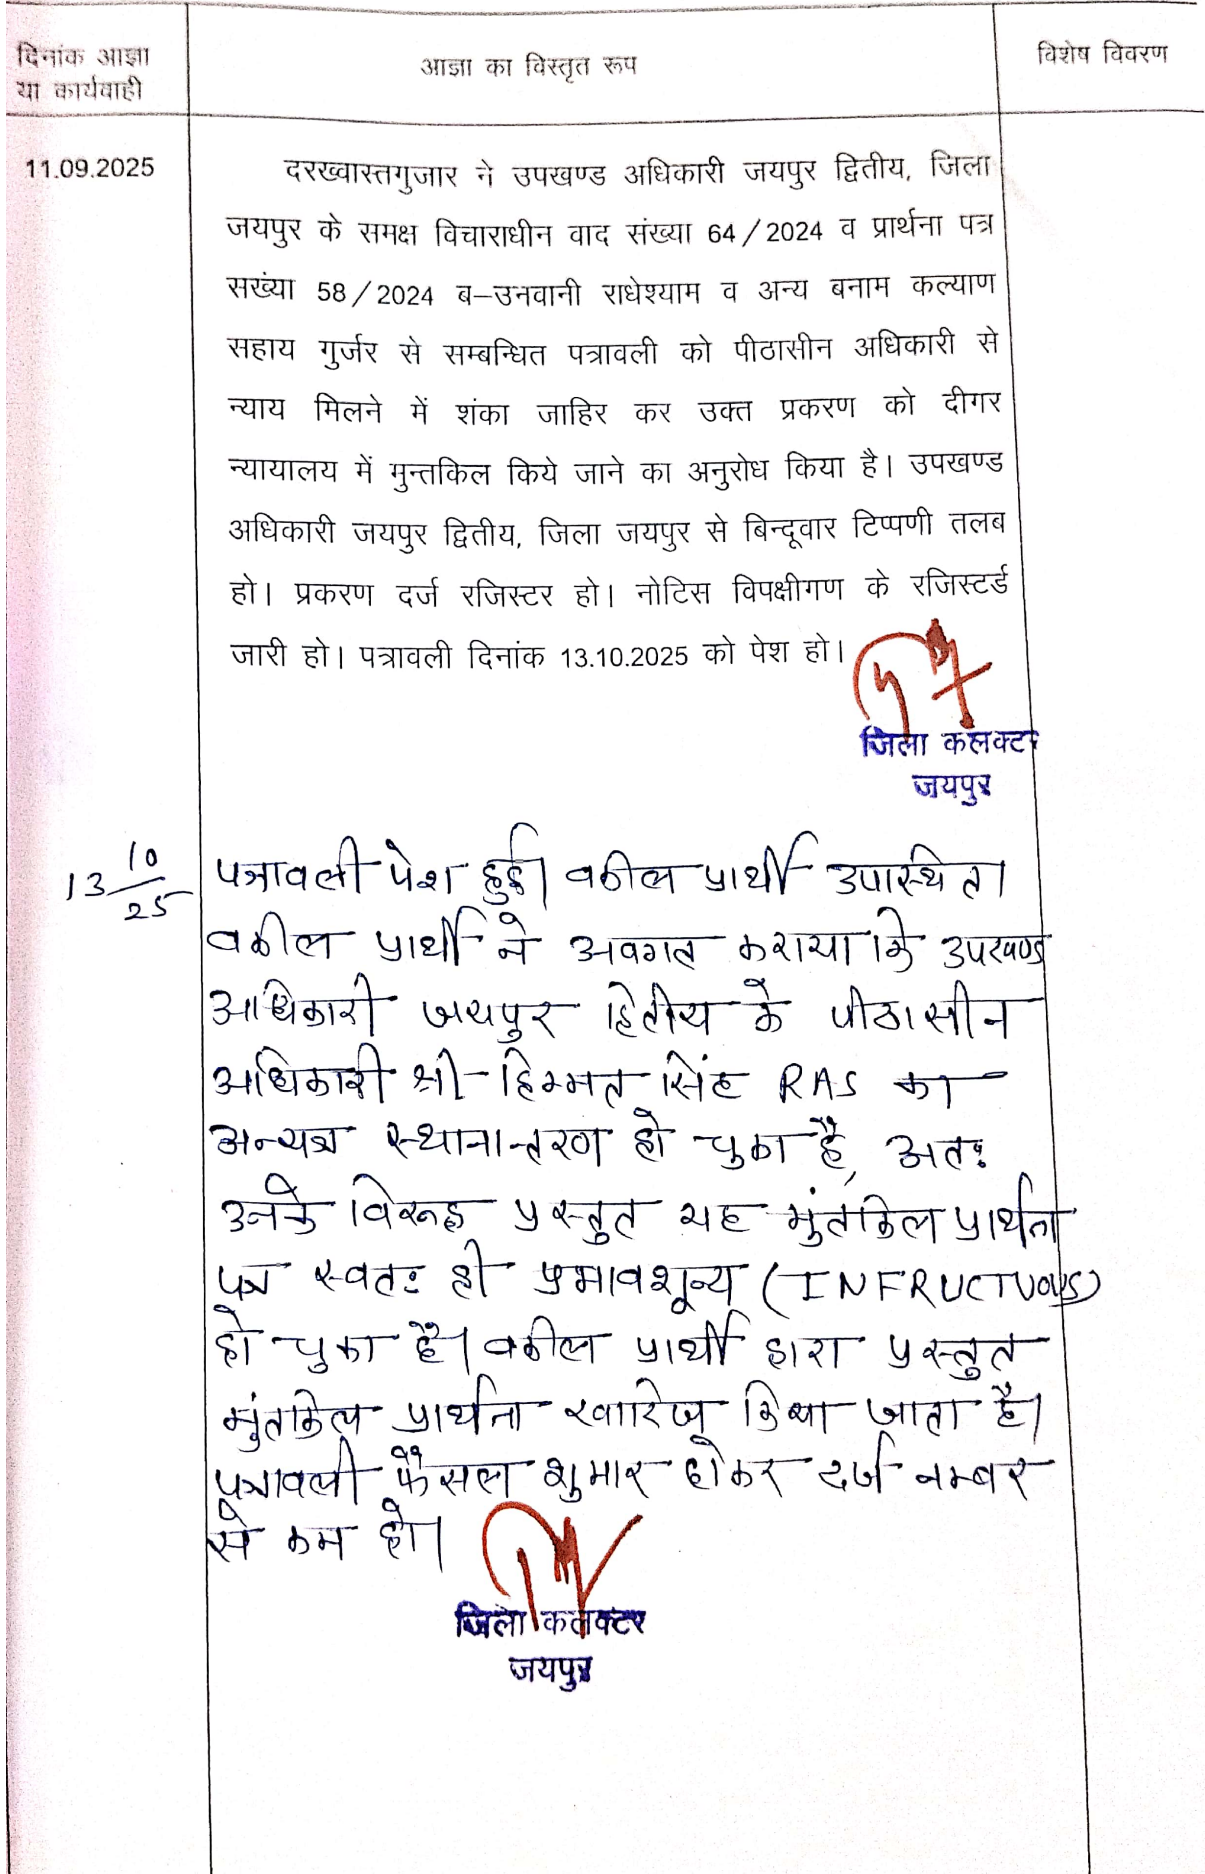 दिनांक आज्ञा
या कार्यवाही
आज्ञा का विस्तृत रूप
विशेष विवरण
11.09.2025
दरख्वास्तगुजार ने उपखण्ड अधिकारी जयपुर द्वितीय, जिला
जयपुर के समक्ष विचाराधीन वाद संख्या 64/2024 व प्रार्थना पत्र
सख्ंया 58/2024 ब–उनवानी राधेश्याम व अन्य बनाम कल्याण
सहाय गुर्जर से सम्बन्धित पत्रावली को पीठासीन अधिकारी से
न्याय मिलने में शंका जाहिर कर उक्त प्रकरण को दीगर
न्यायालय में मुन्तकिल किये जाने का अनुरोध किया है। उपखण्ड
अधिकारी जयपुर द्वितीय, जिला जयपुर से बिन्दूवार टिप्पणी तलब
हो। प्रकरण दर्ज रजिस्टर हो। नोटिस विपक्षीगण के रजिस्टर्ड
जारी हो। पत्रावली दिनांक 13.10.2025 को पेश हो।
जिला कलक्टर
जयपुर
13 10/25
पत्रावली पेश हुई। वकील प्रार्थी उपस्थित।
वकील प्रार्थी ने अवगत कराया कि उपखण्ड
अधिकारी जयपुर द्वितीय के पीठासीन
अधिकारी श्री हिम्मत सिंह RAS का
अन्यत्र स्थानान्तरण हो चुका है, अतः
उनके विरूद्ध प्रस्तुत यह मुंतकिल प्रार्थना
पत्र स्वतः ही प्रभावशून्य (INFRUCTUOUS)
हो चुका है। वकील प्रार्थी द्वारा प्रस्तुत
मुंतकिल प्रार्थना खारिज किया जाता है।
पत्रावली फैसल शुमार होकर दर्ज नम्बर
से कम हो।
जिला कलक्टर
जयपुर